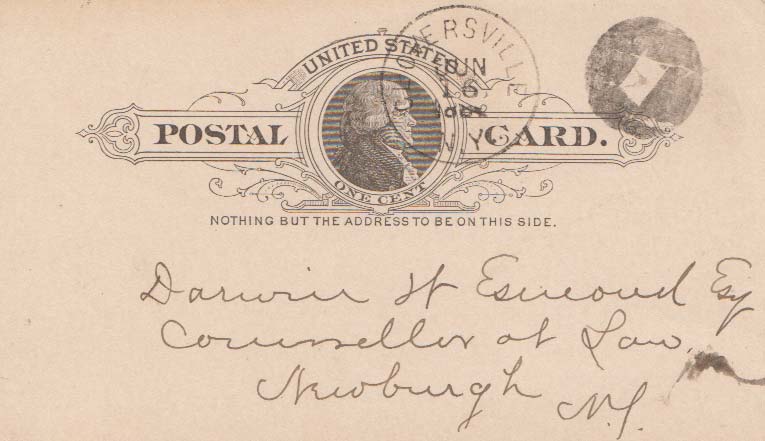 UNITED STATES
POSTAL CARD.
ONE CENT
NOTHING BUT THE ADDRESS TO BE ON THIS SIDE.
JUN
16
Darwin W Esmond Esq
Counsellor at Law
Newburgh
N.Y.